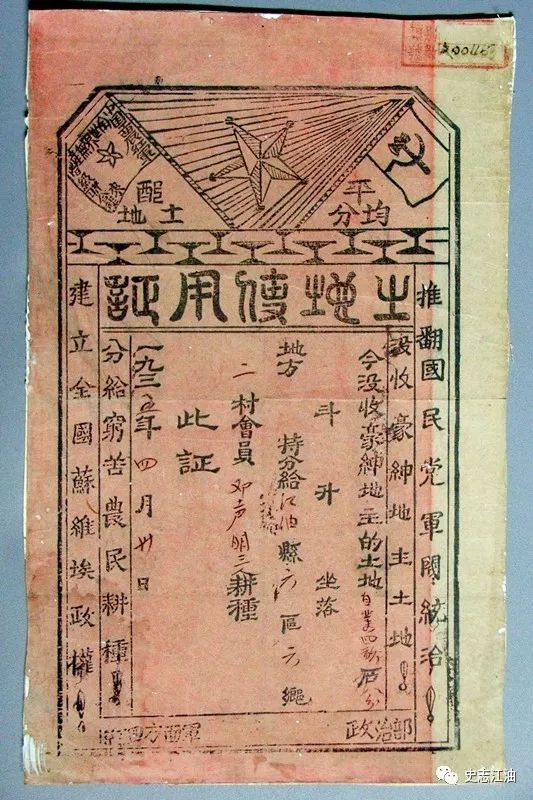 平均
分配
土地
土地使用証
推翻國民党軍閥統治！
沒收豪紳地主土地！
今没收豪紳地主的土地自業四
斗 升 坐落
地方 特分給江油縣六區六
二村會員 邓 明三耕種
此証
一九三五年四月廿日
分給窮苦農民耕種！
建立全國蘇維埃政權！
四方面軍
政治部
史志江油